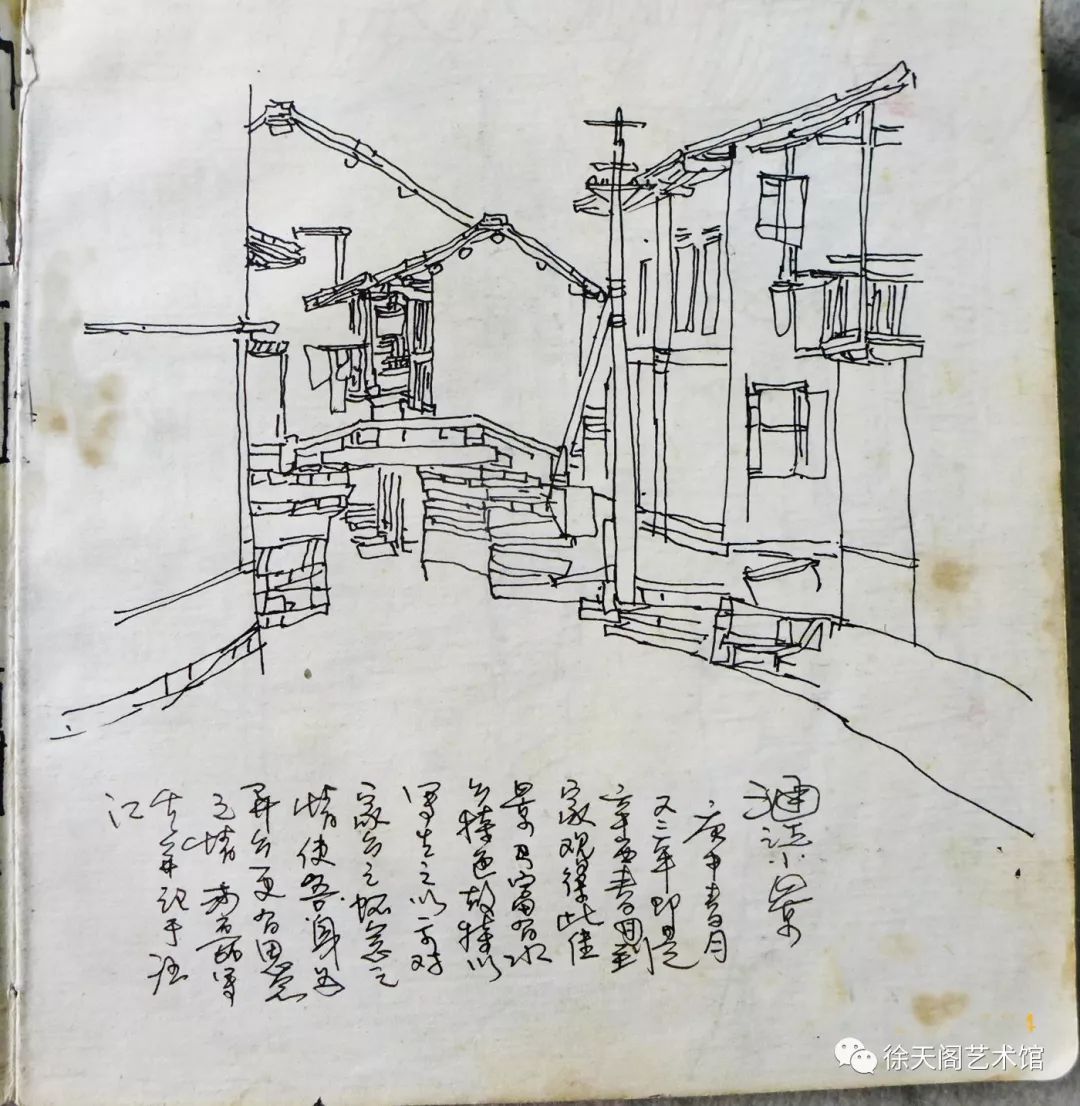 小景
庚申春月
又三年即是
辛酉春回到
家观得此佳
景乃富有水
乡特色故特以
写生之以示对
家乡之怀念之
情使吾身在
异乡更有思念
之情
年记于
江
徐天阁艺术馆